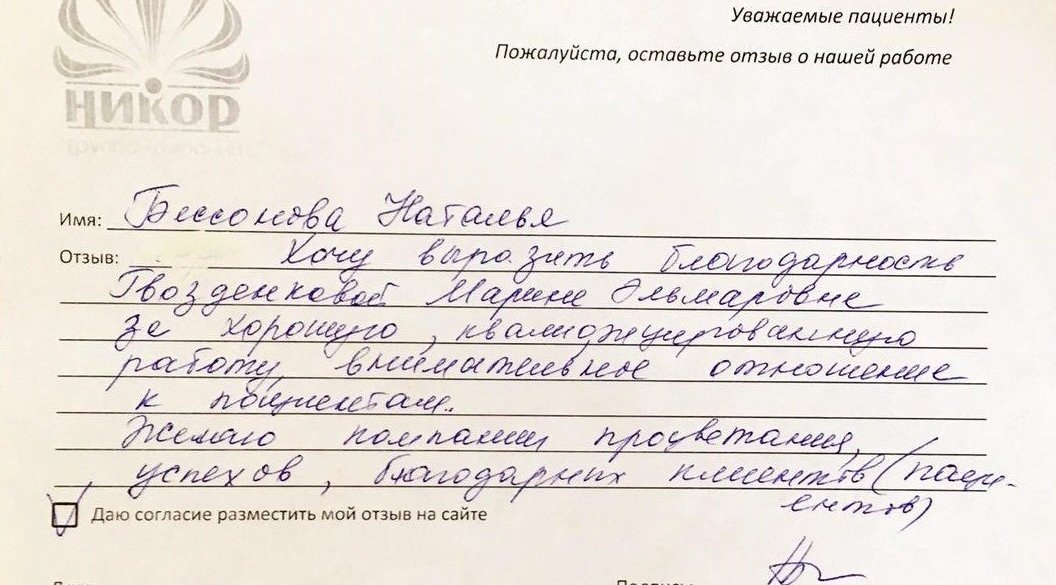 Уважаемые пациенты!
Пожалуйста, оставьте отзыв о нашей работе
НИКОР
Имя: Бессонова Наталья
Отзыв: Хочу выразить благодарность
Гвозденковой Марине Эльмаровне
за хорошую, квалифицированную
работу, внимательное отношение
к пациентам.
Желаю компании процветания,
успехов, благодарных клиентов (паци-
ентов)
Даю согласие разместить мой отзыв на сайте